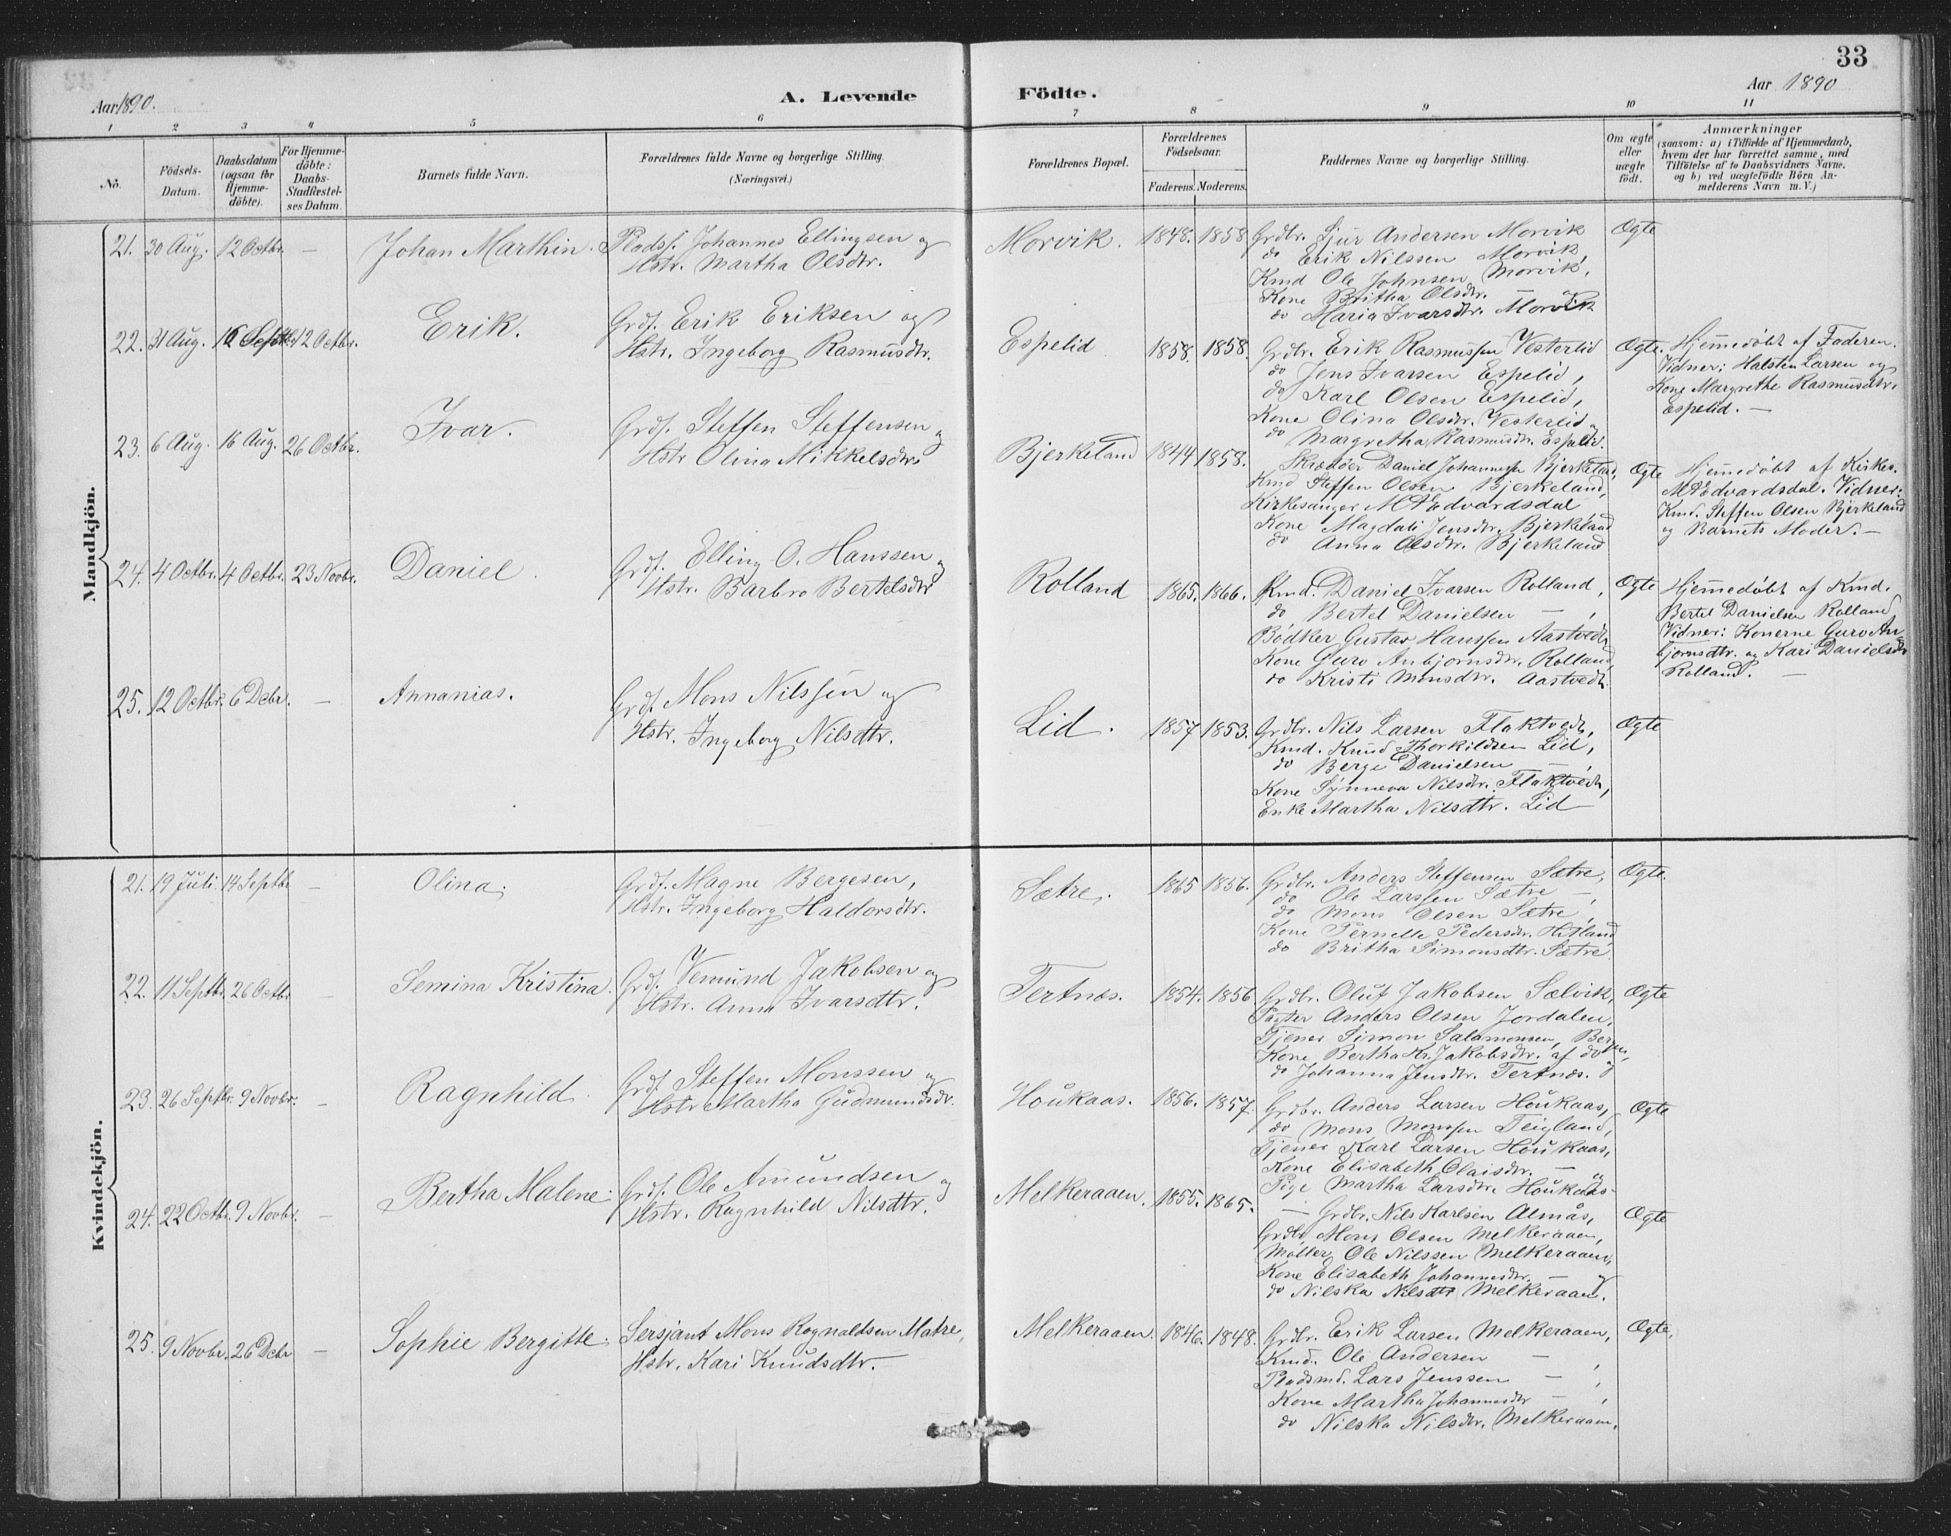 33
Aar 1890.
A. Levende Födte.
Aar 1890
1 2 3 4 5 6 7 8 9 10 11
No.
Födsels-Datum.
Daabsdatum (ogsaa for Hjemme-döbte).
For Hjemme-döbte: Daabs-Stadfæstel-ses Datum.
Barnets fulde Navn.
Forældrenes fulde Navne og borgerlige Stilling. (Næringsvei.)
Forældrenes Bopæl.
Forældrenes Födselsaar.
Faderens. Moderens.
Faddernes Navne og borgerlige Stilling.
Om ægte eller uægte födt.
Anmærkninger
(saasom: a) i Tilfælde af Hjemmedaab, hvem der har forrettet samme, med Tilföielse af to Daabsvidners Navne, og b) ved uægtefödte Börn An-melderens Navn m. V.)
Mandkjön.
21. 30 Aug. 12 Octbr. — Johan Marthin. Pladsf. Johannes Ellingsen og
Hstr. Martha Olsdtr.
Morvik. 1848. 1858
Grdbr. Sjur Andersen Morvik
do Erik Nilssen Morvik,
Kmd Ole Johnsen Morvik,
Kone Britha Olsdtr. — og
do Maria Ivarsdtr. Morvik
Ægte
22. 31 Aug. 16 Septbr. 12 Octbr. Erik. Grdf. Erik Eriksen og
Hstr. Ingeborg Rasmusdtr.
Espelid 1858. 1858.
Grdbr. Erik Rasmussen Vesterlid
do Jens Ivarsen Espelid,
do Karl Olsen Espelid,
Kone Olina Olsdtr. Vesterlid og
do Margretha Rasmusdtr. Espelid.
Ægte.
Hjemmedøbt af Faderen.
Vidner: Halsten Larsen og
Kone Margrethe Rasmusdtr.
Espelid. —
23. 6 Aug. 16 Aug. 26 Octbr. Ivar. Grdf. Steffen Steffensen og
Hstr Olina Mikkelsdtr.
Bjerkeland 1844 1858.
Skrædder Daniel Johannessen Bjerkeland,
Kmd Steffen Olsen Bjerkeland,
Kirkesanger M A Edvardsdal,
Kone Magdali Jensdtr. Bjerkeland
do Anna Olsdtr. Bjerkeland
Ægte
Hjemmedøbt af Kirkes.
M A Edvardsdal. Vidner:
Kmd. Steffen Olsen Bjerkeland
og Barnets Moder. —
24. 4 Octbr. 4 Octbr. 23 Novbr. Daniel. Grdf. Elling O. Hanssen og
Hstr. Barbro Bertelsdtr
Rolland 1865. 1866.
Kmd. Daniel Ivarsen Rolland,
do Bertel Danielsen — ,
Bødker Gustav Hanssen Aastvedt,
Kone Guro Anbjørnsdtr. Rolland,
do Kristi Monsdtr. Aastvedt.
Ægte
Hjemmedøbt af Kmd.
Bertel Danielsen Rolland
Vidner: Konerne Guro An-
bjørnsdtr. og Kari Danielsdtr
Rolland. —
25. 12 Octbr. 6 Debr. — Annanias. Grdf. Mons Nilssen og
Hstr. Ingeborg Nilsdtr.
Lid. 1857 1853.
Grdbr. Nils Larsen Flaktvedt,
Kmd. Knud Thorkildsen Lid,
do Berge Danielsen — ,
Kone Synneva Nilsdtr. Flaktvedt,
Enke Martha Nilsdtr. Lid
Ægte
Kvindekjön.
21. 19 Juli 14 Septbr — Olina. Grdf. Magne Bergesen,
Hstr. Ingeborg Haldorsdtr.
Sætre. 1865 1856.
Grdbr. Anders Steffensen Sætre,
do Ole Larssen Sætre — ,
do Mons Olsen Sætre,
Kone Pernelle Pedersdtr. Hitland
do Britha Simonsdtr. Sætre.
Ægte.
22. 11 Septbr. 26 Octbr — Semina Kristina. Grdf. Vemund Jakobsen og
Hstr. Anna Ivarsdtr.
Tertnæs. 1854. 1856
Grdbr. Oluf Jakobsen Sælvik,
Pagter Anders Olsen Jordalen,
Tjener Simon Salamonsen, Bergen,
Kone Bertha Kr. Jakobsdtr. af do og
do Johanna Jensdtr. Tertnæs.
Ægte
23. 26 Septbr. 9 Novbr. — Ragnhild. Grdf. Steffen Monssen og
Hstr Martha Gudmundsdtr.
Houkaas. 1856. 1857.
Grdbr. Anders Larsen Houkaas,
do Mons Monssen Teigland,
Tjener Karl Larsen Houkaas,
Kone Elisabeth Olaisdtr. — og
Pige Martha Larsdtr. Houkaas.
Ægte
24. 22 Octbr. 9 Novbr. — Bertha Malene. Grdf. Ole Amundsen og
Hstr. Ragnhild Nilsdtr.
Melkeraaen. 1855. 1865.
— Grdbr. Nils Karlsen Almås,
Grdbr Mons Olsen Melkeraaen,
Møller Ole Nilssen Melkeraaen,
Kone Elisabeth Johannesdtr. — og
do Nilska Nilsdtr Melkeraaen.
Ægte
25. 9 Novbr. 26 Debr — Sophie Bergitte. Sersjant Mons Rognaldsen Matre,
Hstr. Kari Knudsdtr. —
Melkeraaen. 1846. 1848.
Grdbr. Erik Larsen Melkeraaen,
Kmd. Ole Andersen — ,
Pladsmd. Lars Jenssen — ,
Kone Martha Johannesdtr — ,
do Nilska Nilsdtr. Melkeraaen.
Ægte.